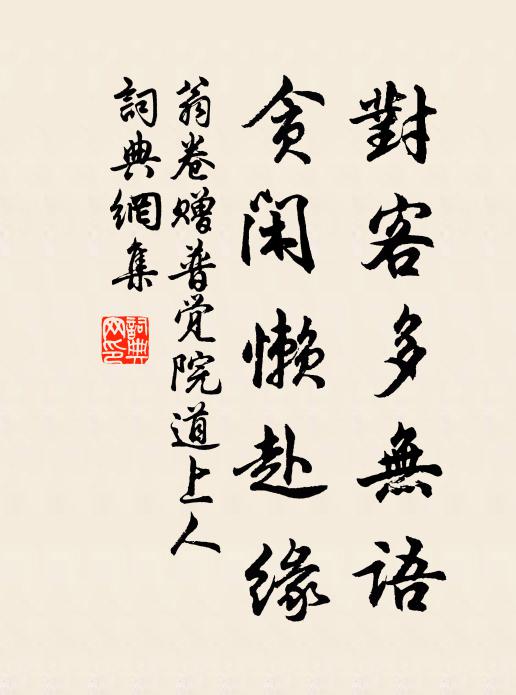 對客多無語
貪閑懶赴緣
翁卷贈普覺院道上人
詞典網集
詞典网印